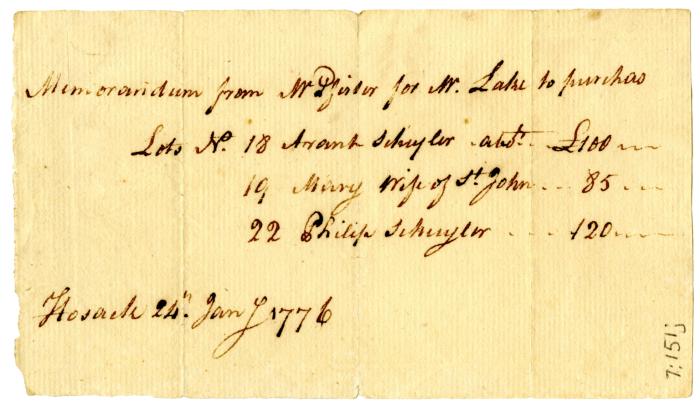 Memorandum from Mr Pfister for Mr. Lake to purchas
Lots No. 18 Arant Schuyler abt. £100
19 Mary Wife of St. John 85
22 Philip Schuyler 120
Hosack 24th. Jany 1776
7:151j